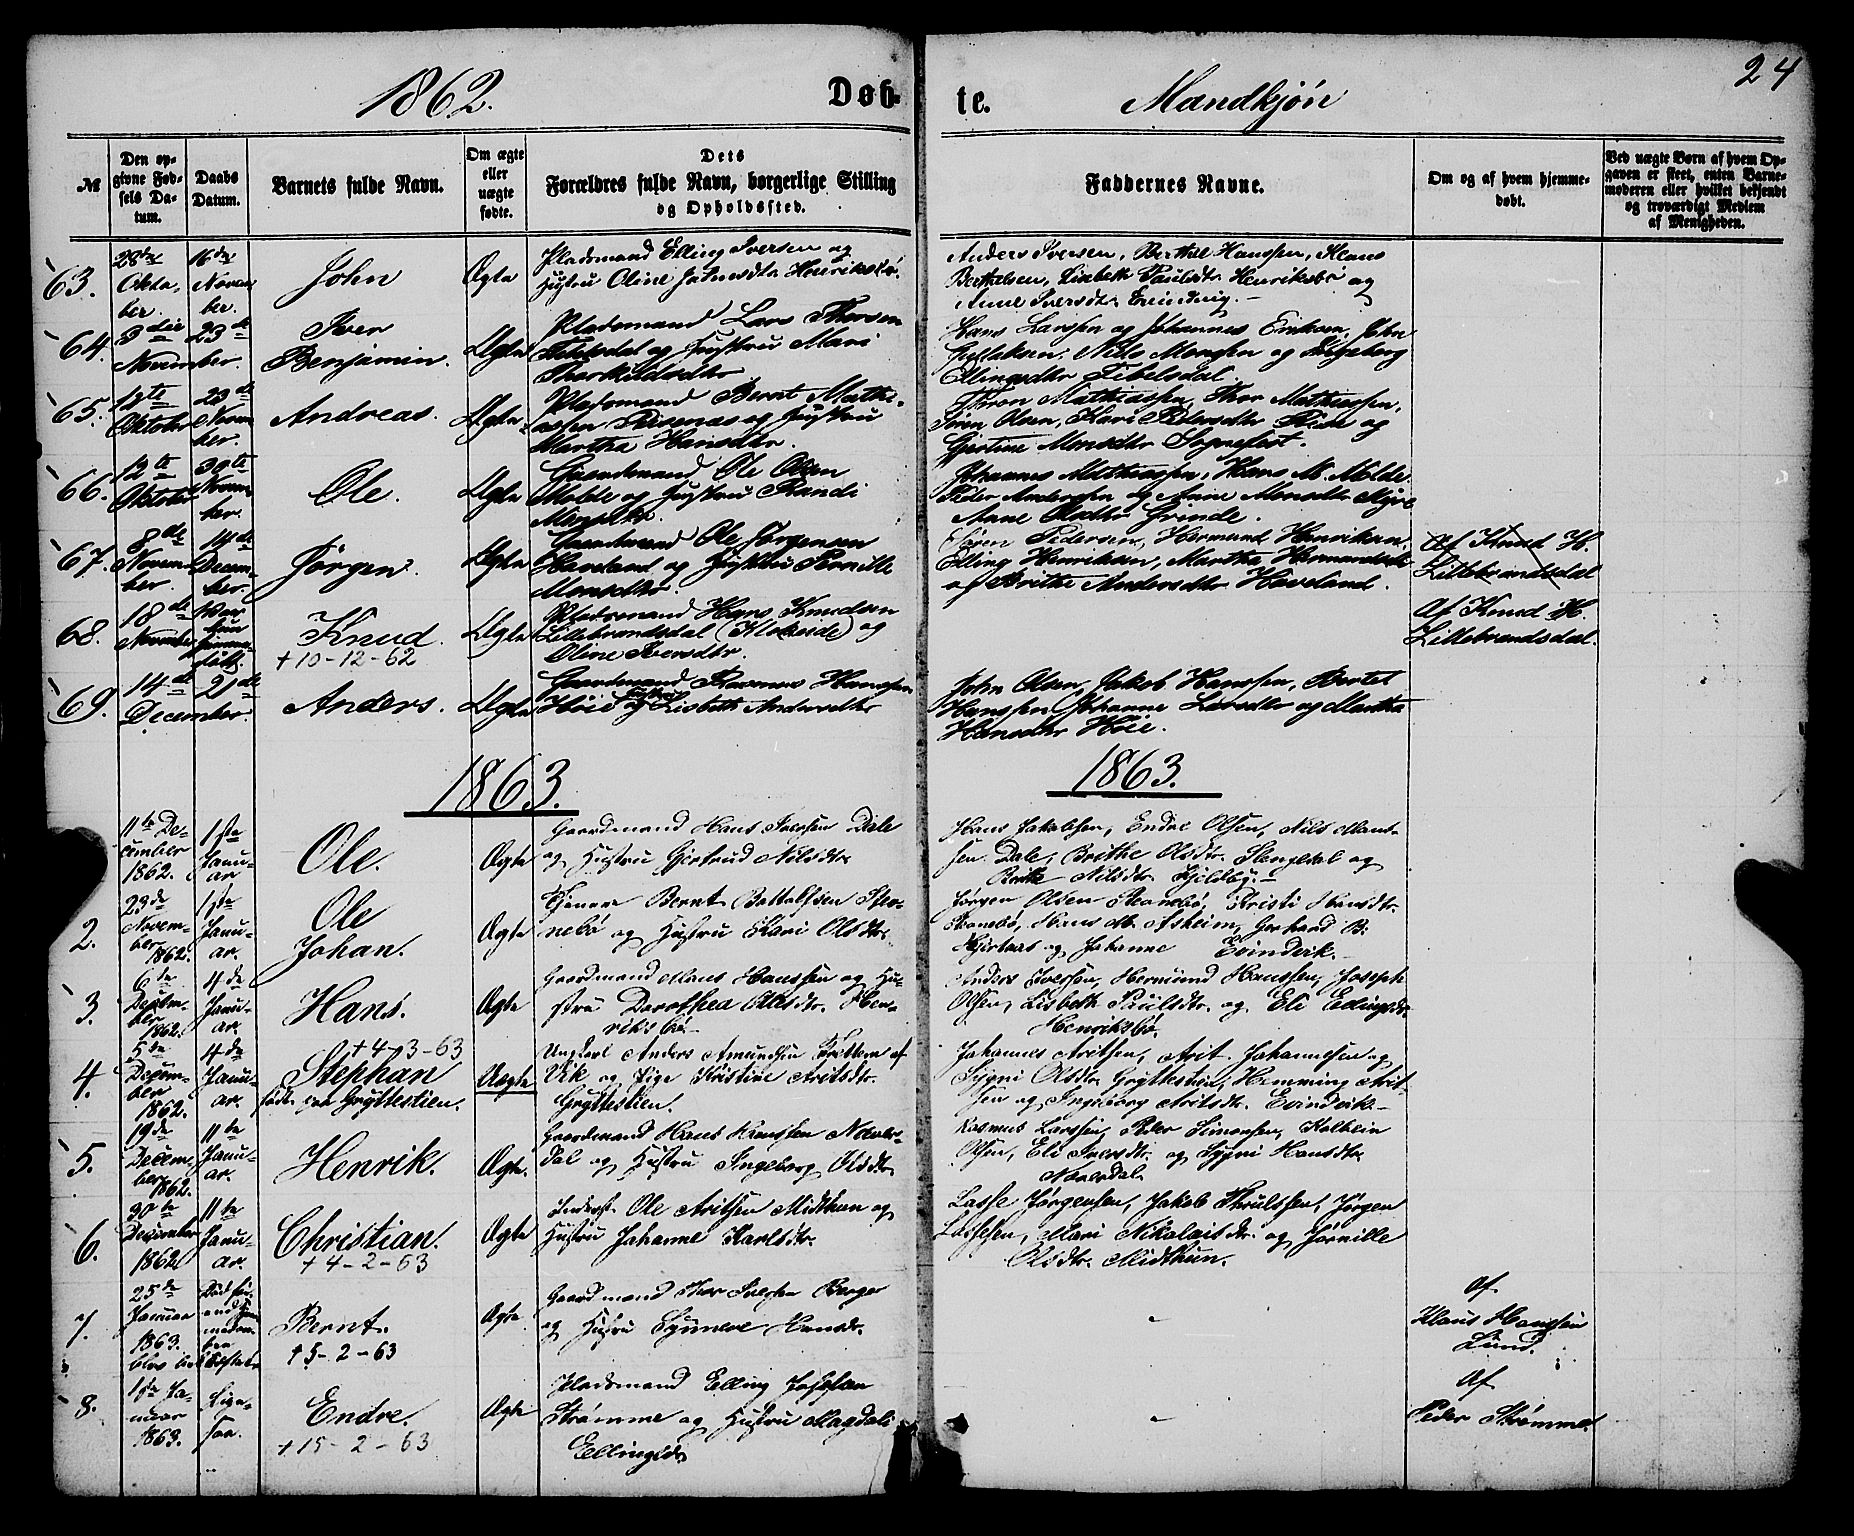 1862. Døb- te. Mandkjøn 24
№
Den opgivne Fødsels Datum.
Daabs Datum.
Barnets fulde Navn.
Om ægte eller uægte fødte.
Dets Forældres fulde Navn, borgerlige Stilling og Opholdssted.
Faddernes Navne.
Om og af hvem hjemmedøbt.
Ved uægte Børn af hvem Opgaven er skeet, enten Barnemoderen eller hvilket bekjendt og troværdigt Medlem af Menigheden.
63. 28de Oktober. 16de November. John Ægte
Pladsmand Elling Iversen og
Hustru Oline Johnsdtr Henriksbø.
Anders Iversen, Berthel Hanssen, Klaus
Berthelsen, Lisbeth Paulsdtr. Henriksbø og
Anne Iversdtr. Evindvig.
64. 3die November 23de Iver Benjamin. Ægte
Pladsmand Lars Thorsen
og Hustru Mari
Thorkildsdtr
Hans Larssen og Johannes Eriksen, John
Nils Monssen og Ingeborg
Ellingsdtr
65. 12te Oktober 23de November. Andreas. Ægte
Pladsmand Bernt Mathiassen
og Hustru
Martha Hansdtr.
Mathiassen, Thor Mathiassen,
Søren Olsen, Kari Pedersdtr og
Gjertine Monsdtr Sognefest.
66. 12te Oktober 30te November. Ole. Ægte
Gaardmand Ole Olsen
Molde og Hustru Randi
Monsdtr.
Johannes Mathiassen, Hans M. Molde
Peder Anderssen og Anne Monsdtr
Anne Olsdtr Grinde.
67. 8de November. 14de December. Jørgen. Ægte
Gaardmand Ole Jørgensen
Haveland og Hustru Pernille
Monsdtr.
Søren Pedersen, Hermund Henriksen.
Elling Henriksen, Martha Hermundsdtr
og Brithe Andersdtr Haveland.
Af Knud H.
Lillebrandsdal
68. 18de November Knud. Ægte
+10-12-62
Pladsmand Hans Knudsen
Lillebrandsdal og
Oline Iversdtr.
Af Knud H.
Lillebrandsdal.
69. 14de December 21de Anders. Ægte
Gaardmand Rasmus Hanssen
Høie og Hustru Lisbeth Andersdtr
John Olsen, Jakob Hanssen, Bertel
Hanssen, Johanne Larsdtr og Martha
Hansdtr Høie.
1863. 1863.
11te December 1862. 1ste Januar Ole. Ægte
Gaardmand Hans Iverssen Dale
og Hustru Gjertrud Nilsdtr.
Hans Jakobsen, Endre Olsen, Nils
Dale, Brithe Olsdtr. Stengedal og
Brithe Nilsdtr.
2. 23de November 1862. 1ste Januar. Ole Johan. Ægte
Tjener Bernt Stenebø
og Hustru Kari Olsdtr.
Jørgen Olsen Stenebø, Kristi Hansdtr.
Stenebø, Hans M. Asheim, Gerhard B.
Hjertaas og Johanne Evindvik.
3. 6de December 1862. 4de Januar. Hans. Ægte
Gaardmand Hans Hanssen og Hustru
Dorothea Olsdtr. Henriksbø.
Anders Iverssen, Hermund Hanssen, Joseph
Olsen, Lisbeth Paulsdtr. og Eli Ellingsdtr.
Henriksbø.
4. 5de December 1862. 4de Januar. Stephan +4-3-63 Uægte
født paa Gryttestien.
Ungkarl Anders Amundsen
Vik og Pige Kristine Aritsdtr.
Gryttestien.
Johannes Aritsen, Arit Johannesen og
Sygni Olsdtr. Gryttestien, Hemming Aritsen
og Ingeborg Aritsdtr. Evindvik.
5. 19de December 1862. 11te Januar. Henrik. Ægte.
Gaardmand Hans Hanssen Noverdal
og Hustru Ingeborg Olsdtr.
Rasmus Larssen, Peder Simonsen, Kolbein
Olsen, Eli Iversdtr. og Sygni Hansdtr.
Noverdal
6. 30te December 1862 11te Januar. Christian. Ægte
+4-2-63
Inderst. Ole Aritsen Midthun og
Hustru Johanne Karlsdtr.
Lasse Jørgensen, Jakob Thrulssen, Jørgen
Lassesen, Mari Nikolaisdtr. og Pernille
Olsdtr. Midthun.
7. 25de Januar 1863. Bernt. Ægte
+5-2-63
Gaardmand Thor Iverssen Berger
og Hustru Synneve Hansdtr.
Af
Klaus Hanssen
Lund.
8. 1ste Januar 1863. Ligesaa. Endre. Ægte
+15-2-63
Pladsmand Elling Josephsen
Strømme og Hustru Magdali
Ellingsdtr
Af
Peder Strømme.